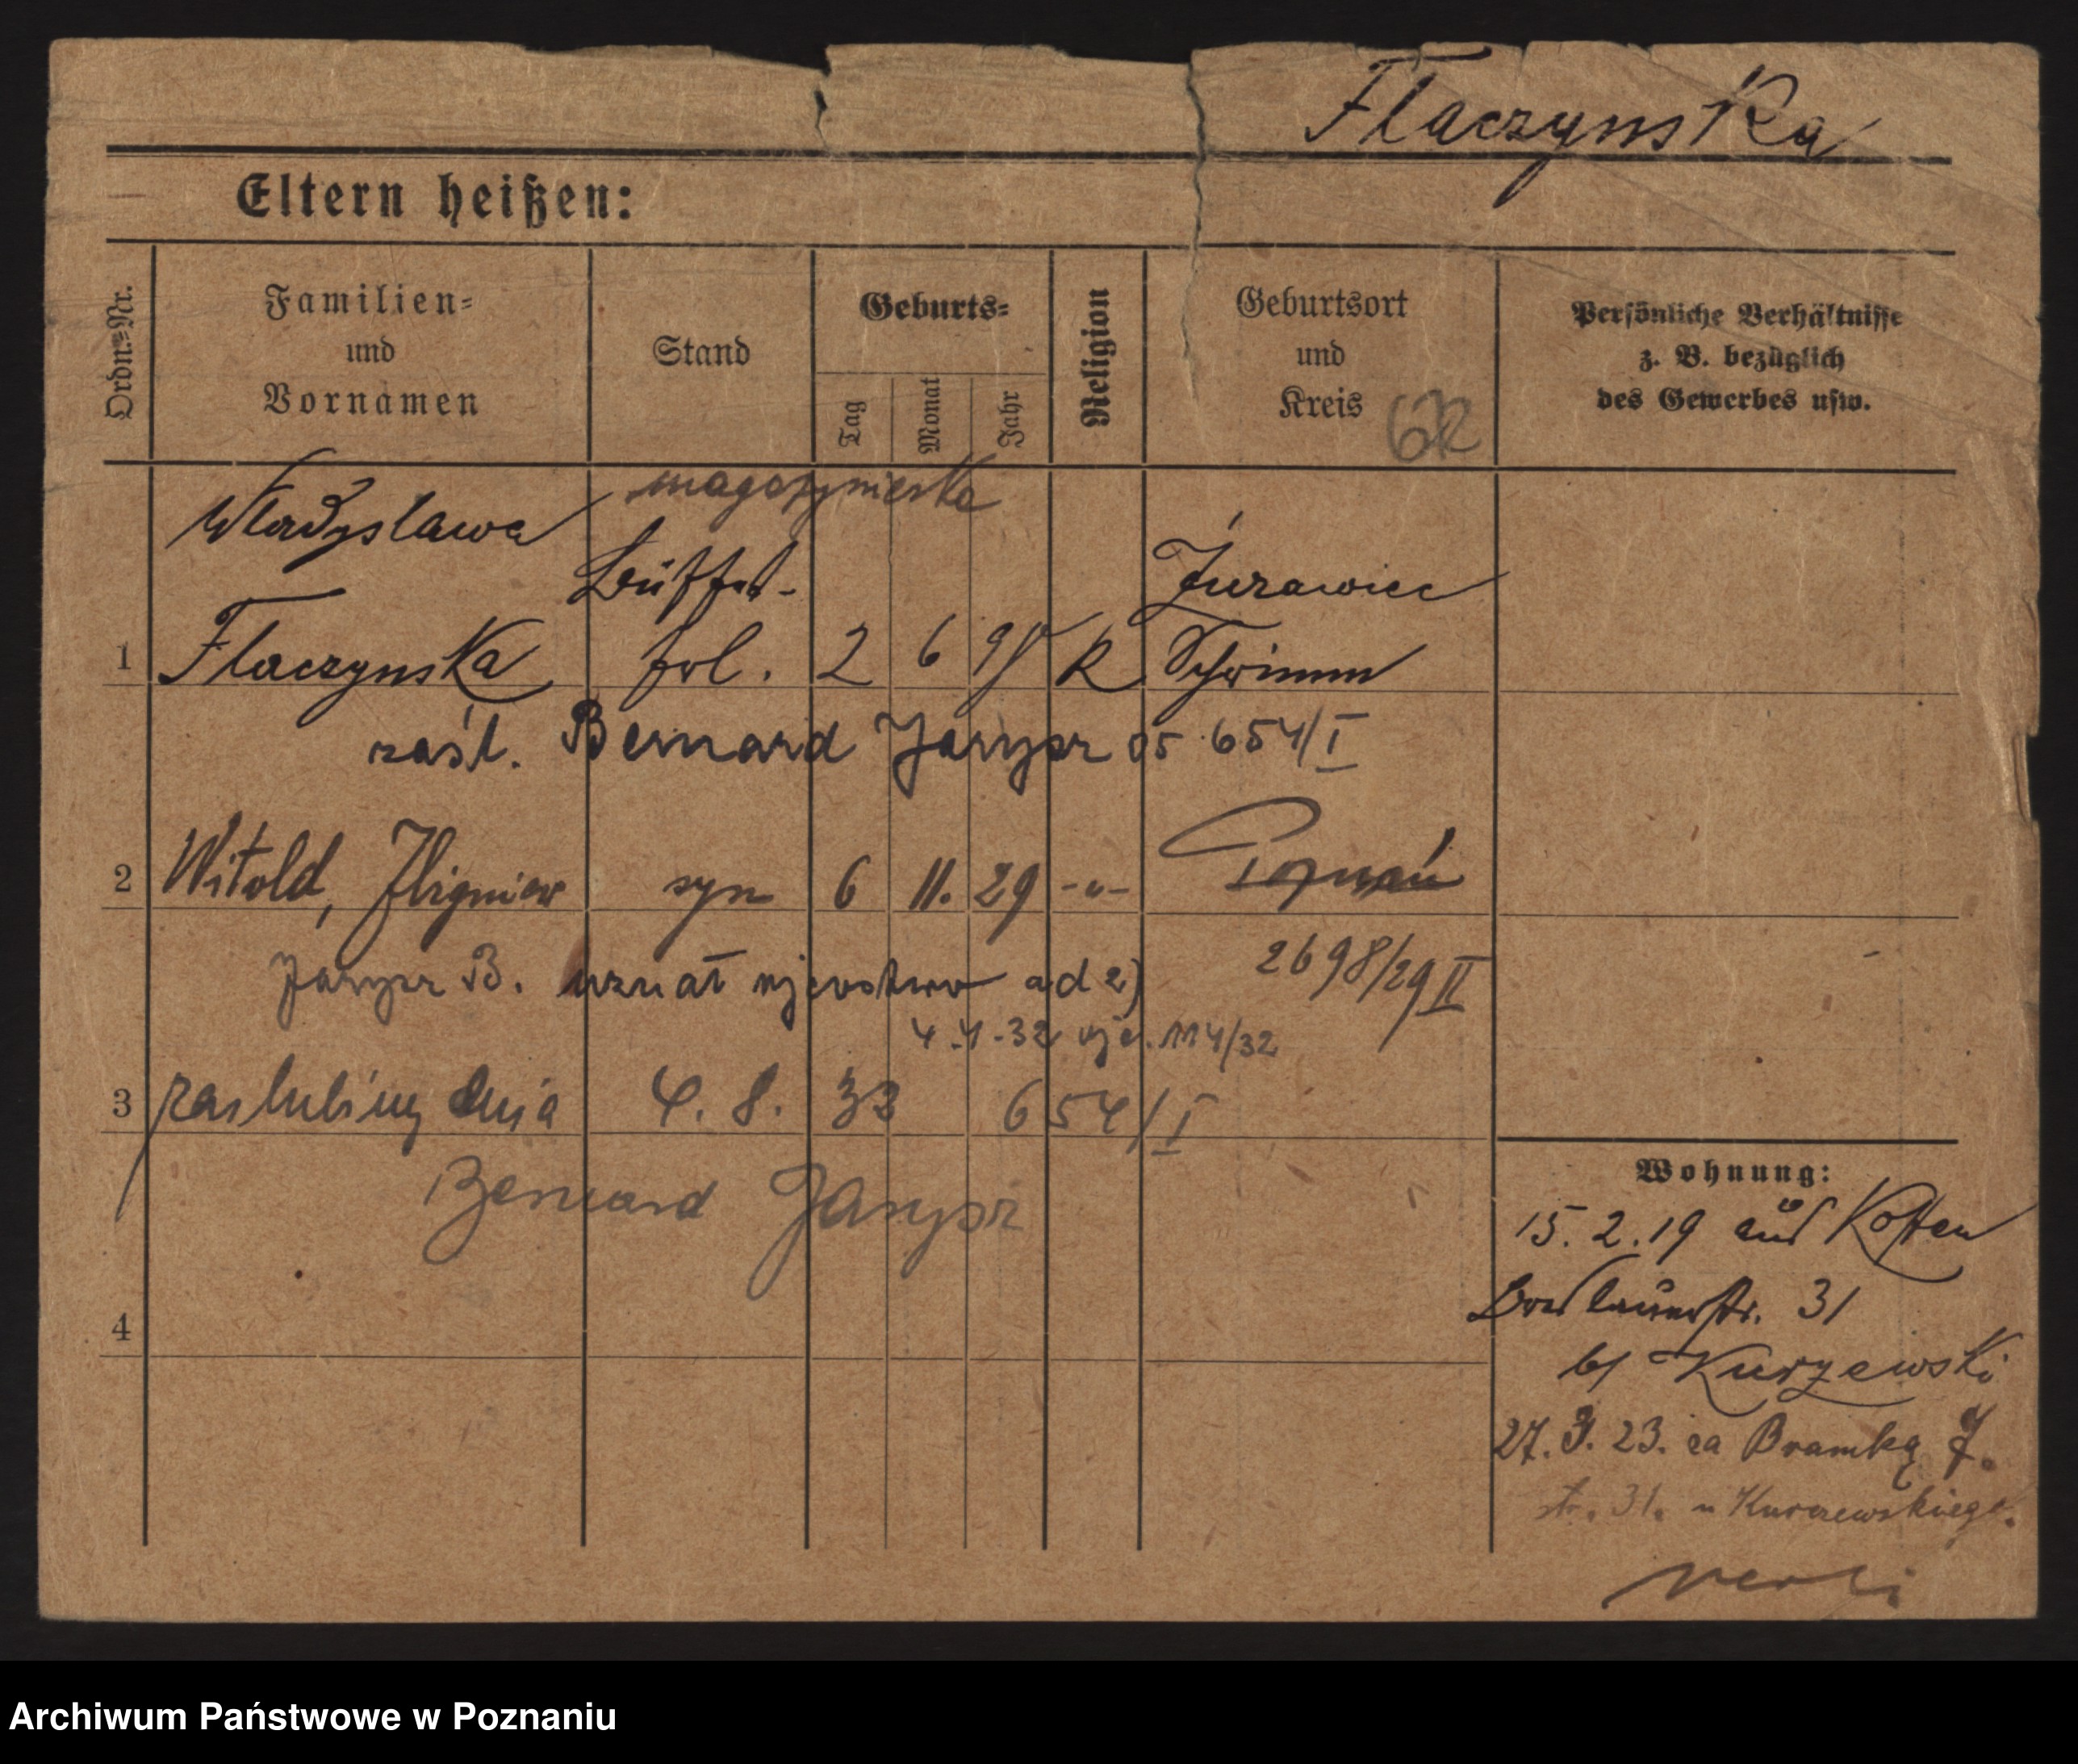 Flaczynska
Eltern heißen:
Ordn.-Nr.
Familien-
und
Vornamen
Stand
Geburts-
Tag
Monat
Jahr
Religion
Geburtsort
und
Kreis
Persönliche Verhältnisse
z. B. bezüglich
des Gewerbes usw.
magazynierka
Władyslawa
Büffet-
Żurawiec
1 Flaczynska frl. 2 6 R Schrimm
zaśl. Bernard 05 654/I
2 Witold, Zbigniew syn 6 11. 29 -"- Poznań
B. uznał ojcostwo ad 2) 2698/29 II
32 114/32
3 zaslubiny dnia 4. 8. 33 654/I
Bernard
4
Wohnung:
15. 2. 19 aus Kosten
Breslauerstr. 31
b/ Kurzewski
27. 3. 23. za Bramką 7.
str. 31. u Kurzewskiego.
verti
Archiwum Państwowe w Poznaniu